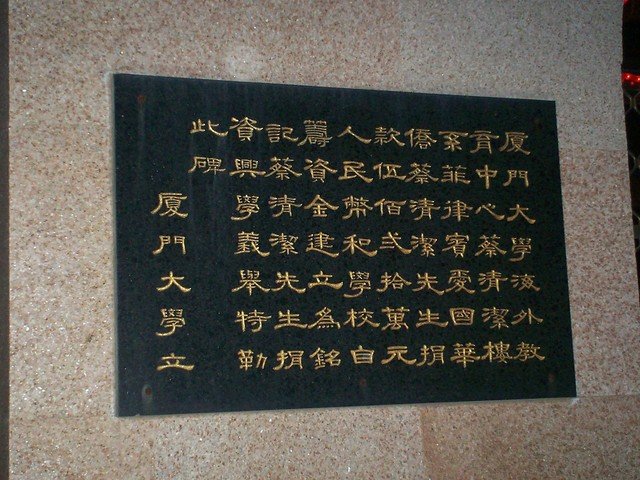 厦門大學海外教
育中心蔡清潔樓
系菲律賓愛國華
僑蔡清潔先生捐
款伍佰弍拾萬元
人民幣和學校自
籌資金建立為銘
記蔡清潔先生捐
資興學義舉特勒
此碑
厦門大學立